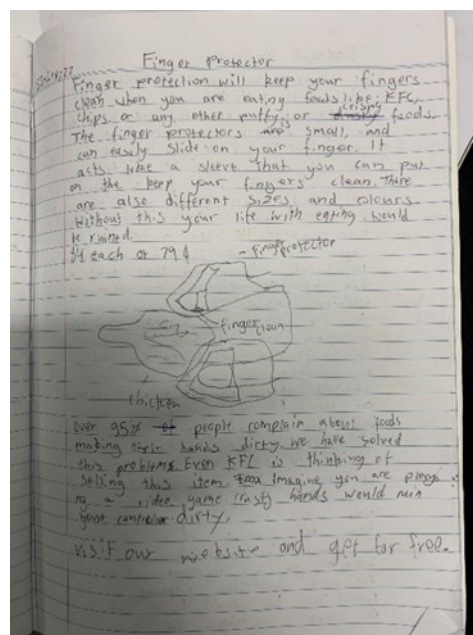 Finger Protector
Finger protection will keep your fingers
clean when you are eating foods like KFC,
chips or any other puffy or crispy foods.
The finger protectors is small, and
can easily slide on your finger. It
acts like a sleeve that you can put
on the keep your fingers clean. There
are also different sizes, and colours.
Without this your life with eating would
be ruined.
$1 each or 79¢
- finger protector
finger clean
chicken
Over 95% people complain about foods
making their hands dirty. we have solved
this problem. Even KFC is thinking of
selling this item. Imagine you are
a video game crusty hands would ruin
your controller dirty.
visit our website and get for free.